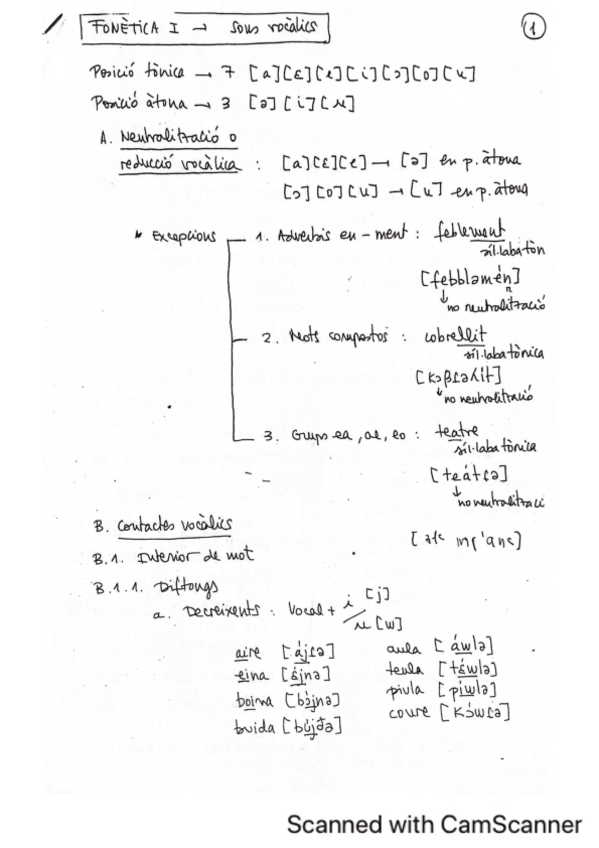 FONÈTICA I → Sons vocàlics
1
Posició tònica → 7 [a][ɛ][e][i][ɔ][o][u]
Posició àtona → 3 [ə][i][u]
A. Neutralització o
reducció vocàlica : [a][ɛ][e] → [ə] en p. àtona
[ɔ][o][u] → [u] en p. àtona
* Excepcions 1. Adverbis en -ment : feblement
síl·laba tòn
[febbləmén]
n
↓ no neutralització
2. Mots compostos : cobrellit
síl·laba tònica
[kɔβɾəʎít]
↓ no neutralització
3. Grups ea, ae, eo : teatre
síl·laba tònica
[teátɾə]
↓ no neutralitzaci
B. Contactes vocàlics
B.1. Interior de mot
B.1.1. Diftongs
a. Decreixents : Vocal + i [j]
u [w]
aire [ájɾə] aula [áwlə]
eina [éjnə] teula [téwlə]
boina [bɔ́jnə] piula [píwlə]
buida [bújðə] coure [kɔ́wɾə]
Scanned with CamScanner